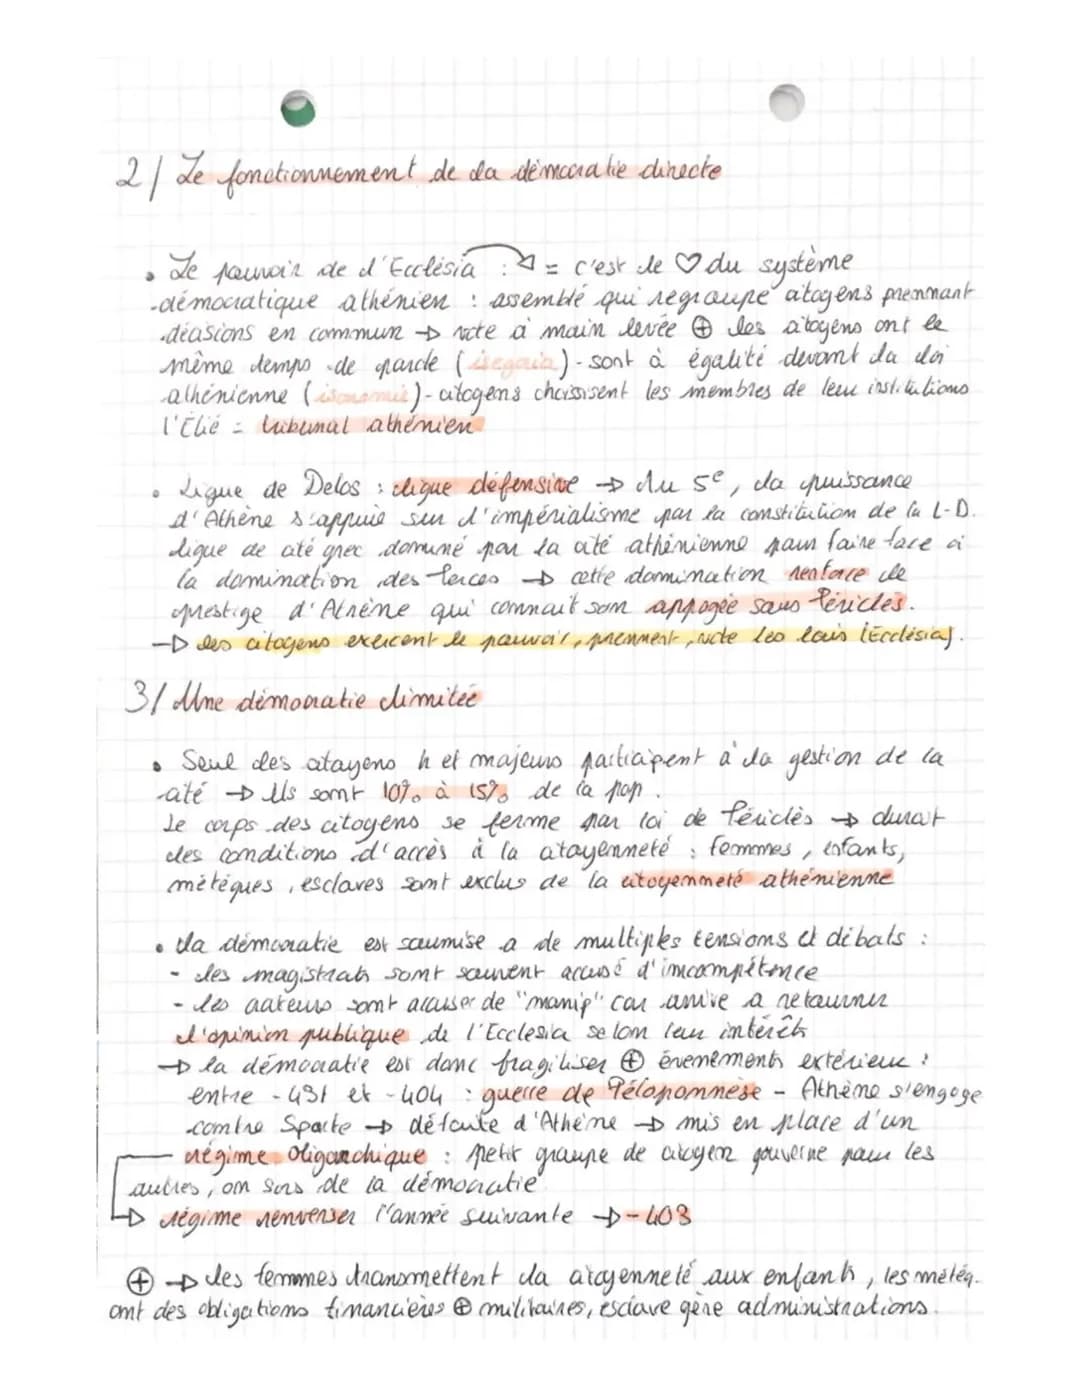 2/ Le fonctionnement de la démocratie directe
• Le pouvoir de l'Ecclésia : = c'est le ♡ du système
démocratique athénien : assemblé qui regroupe citoyens prennant
décisions en commun → vote à main levée ⊕ les citoyens ont le
même temps de parole (isegoria) - sont à égalité devant la loi
athénienne (isonomie) - citoyens choisissent les membres de leur institutions
l'Elié = tribunal athénien
• Ligue de Delos : ligue défensive → Au 5e, la puissance
d'Athène s'appuie sur l'impérialisme par la constitution de la L-D.
ligue de cité grec dominé par la cité athénienne pour faire face à
la domination des Perces → cette domination renforce le
prestige d'Athène qui connait son appogée sous Périclès.
→ les citoyens exercent le pouvoir, prennent, vote les lois (Ecclésia).
3/ Une démocratie limitée
• Seul les citoyens h et majeurs participent à la gestion de la
cité → Ils sont 10% à 15% de la pop.
Le corps des citoyens se ferme par loi de Périclès → durcit
les conditions d'accès à la citoyenneté : femmes, enfants,
métèques, esclaves sont exclus de la citoyenneté athénienne
• La démocratie est soumise a de multiples tensions et débats :
- les magistrats sont souvent accusé d'incompétence
- les orateurs sont accuser de "manip" car arrive a retourner
l'opinion publique de l'Ecclesia selon leur intérêts
→ la démocratie est donc fragiliser ⊕ évenements extérieur :
entre -431 et -404 : guerre de Péloponnèse - Athène s'engage
contre Sparte → défaite d'Athène → mis en place d'un
régime oligarchique : petit groupe de citoyen gouverne pour les
autres, on sors de la démocratie
→ régime renverser l'année suivante → -403
⊕ → les femmes transmettent la citoyenneté aux enfants, les métèq.
ont des obligations financières ⊕ militaires, esclave gère administrations.